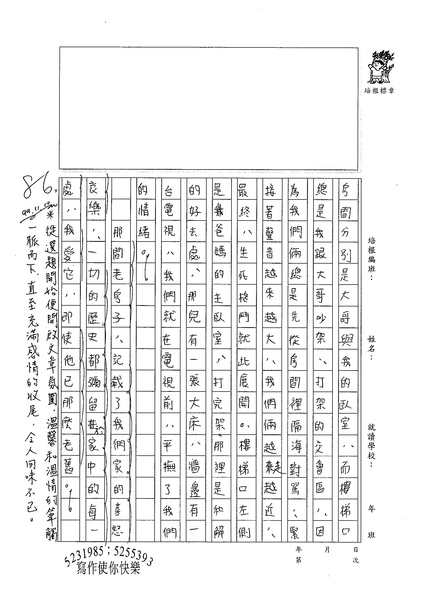 培根標章
培根編班：　姓名：　就讀學校：　年　班
年　月　日
第　次
房間分別是大哥與我的臥室，而樓梯口
總是我跟大哥吵架、打架的交會區，因
為我們倆總是先從房間裡隔海對罵，緊
接著聲音越來越大，我們倆越走越近，
最終，生死格鬥就此展開。樓梯口左側
是爸媽的主臥室，打完架那裡是和解
的好去處，那兒有一張大床，牆邊有一
台電視，我們就在電視前，平撫了我們
的情緒。
那間老房子，記載了我們家的喜怒
哀樂，一切的歷史都彌留在於家中的每一
處，我愛它，即使他已那麼老舊。
86.
99.11.
※從選題開始便開啟文章氛圍，溫馨和溫情的筆觸
一脈而下，直至充滿感情的收尾，令人回味不已。
5231985；5255393
寫作使你快樂